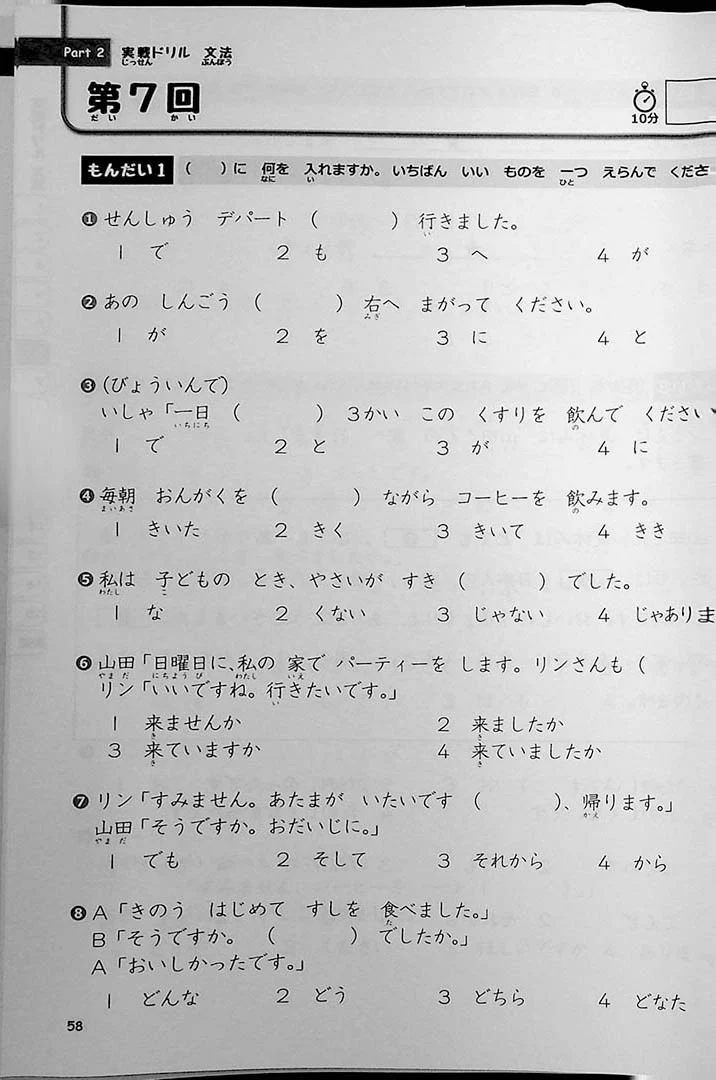 Part 2 実戦ドリル 文法
じっせん ぶんぽう
第7回
だい かい
10分
もんだい1 （ ）に 何を 入れますか。いちばん いい ものを 一つ えらんで くださ
なに い ひと
❶ せんしゅう デパート （ ） 行きました。
い
1 で 2 も 3 へ 4 が
❷ あの しんごう （ ） 右へ まがって ください。
みぎ
1 が 2 を 3 に 4 と
❸ （びょういんで）
いしゃ「一日 （ ） 3かい この くすりを 飲んで ください
いちにち の
1 で 2 と 3 が 4 に
❹ 毎朝 おんがくを （ ） ながら コーヒーを 飲みます。
まいあさ の
1 きいた 2 きく 3 きいて 4 きき
❺ 私は 子どもの とき、やさいが すき （ ） でした。
わたし こ
1 な 2 くない 3 じゃない 4 じゃありま
❻ 山田「日曜日に、私の 家で パーティーを します。リンさんも （
やま だ にちよう び わたし いえ
リン「いいですね。行きたいです。」
い
1 来ませんか 2 来ましたか
き き
3 来ていますか 4 来ていましたか
き き
❼ リン「すみません。あたまが いたいです （ ）、帰ります。」
かえ
山田「そうですか。おだいじに。」
やま だ
1 でも 2 そして 3 それから 4 から
❽ A「きのう はじめて すしを 食べました。」
た
B「そうですか。 （ ） でしたか。」
A「おいしかったです。」
1 どんな 2 どう 3 どちら 4 どなた
58